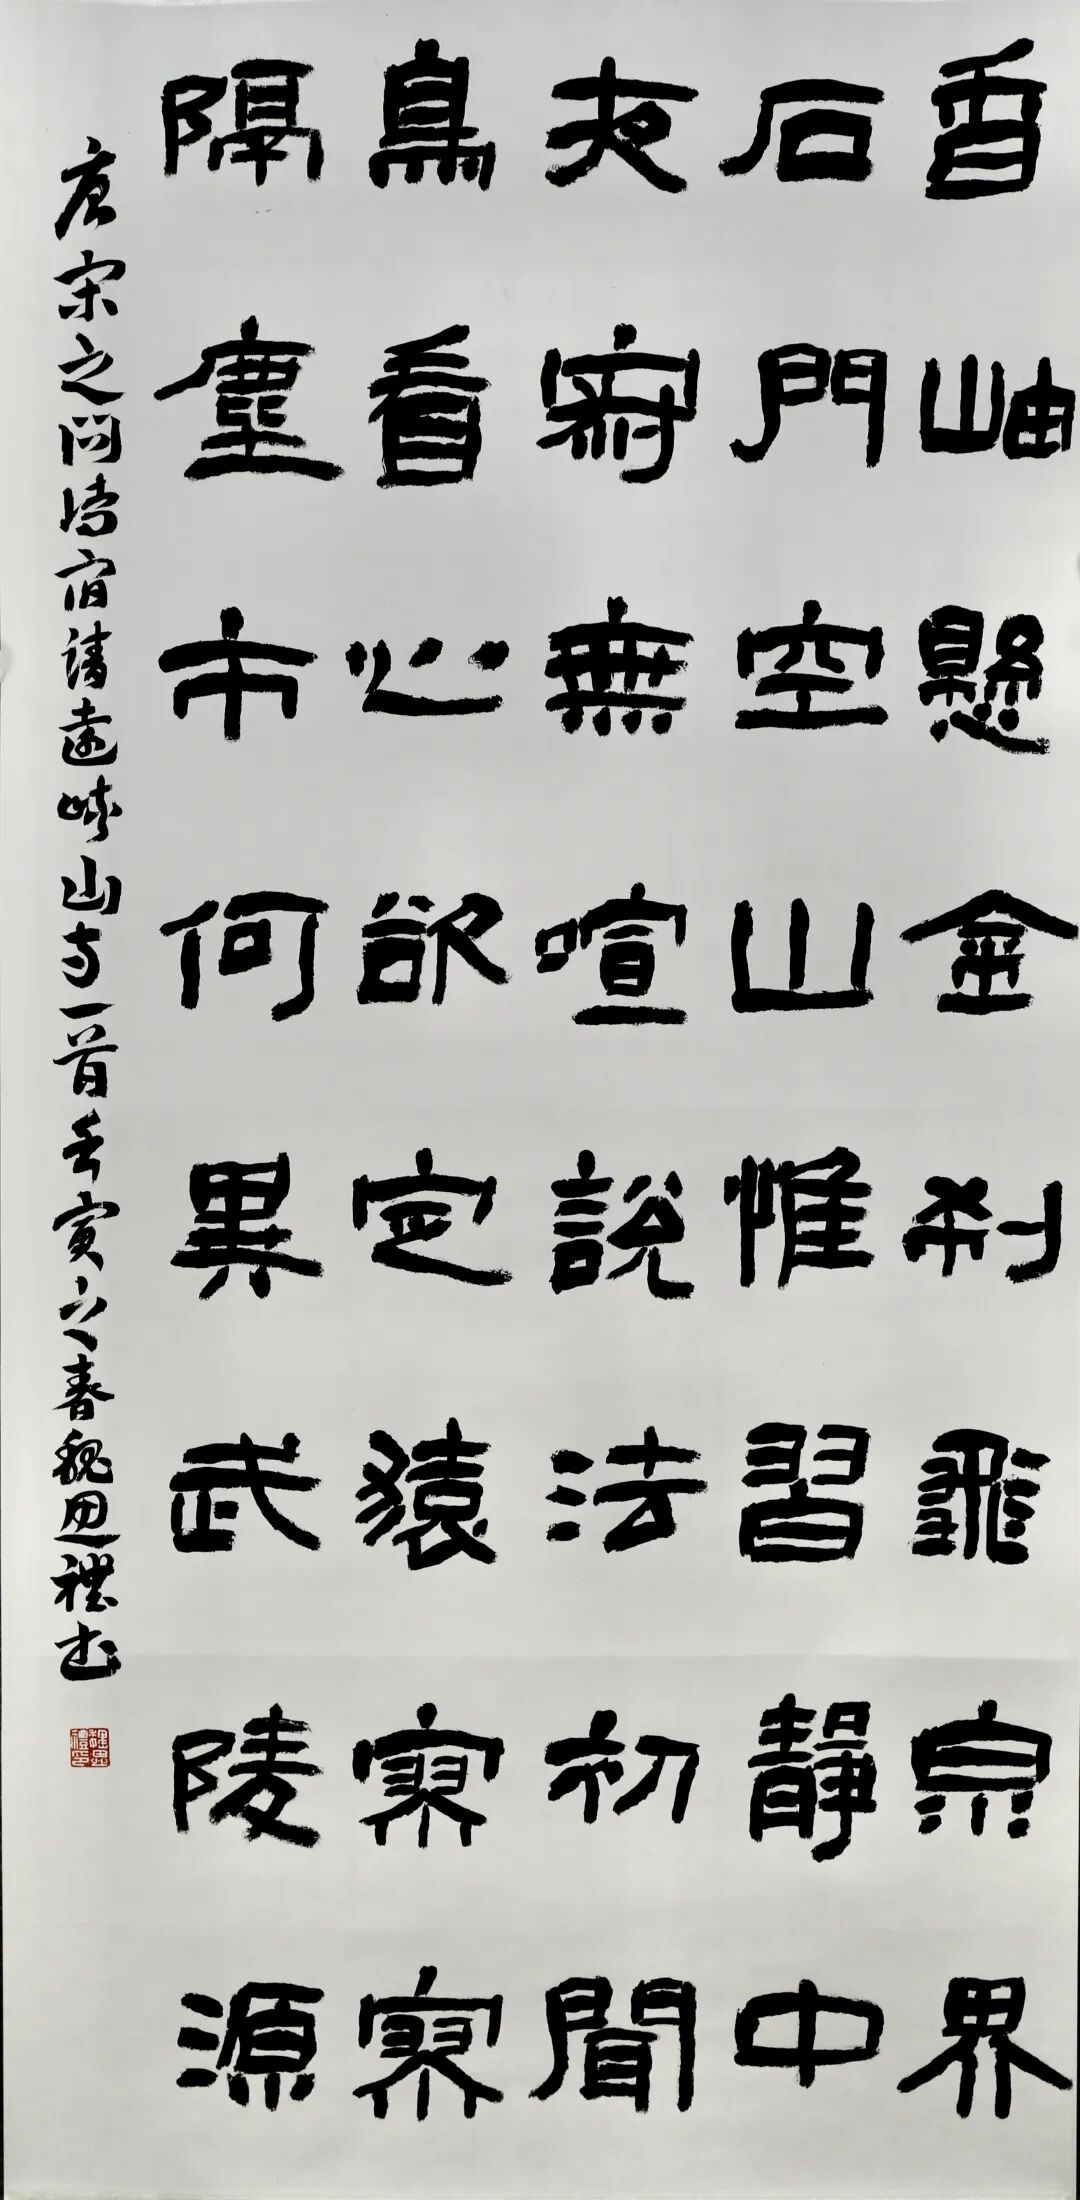 香岫懸金刹飛泉界
石門空山惟習靜中
夜寂無喧說法初聞
鳥看心欲定猿寥寥
隔塵市何異武陵源
唐宋之問詩宿清遠峽山寺一首壬寅之春魏思禮书
魏思禮印